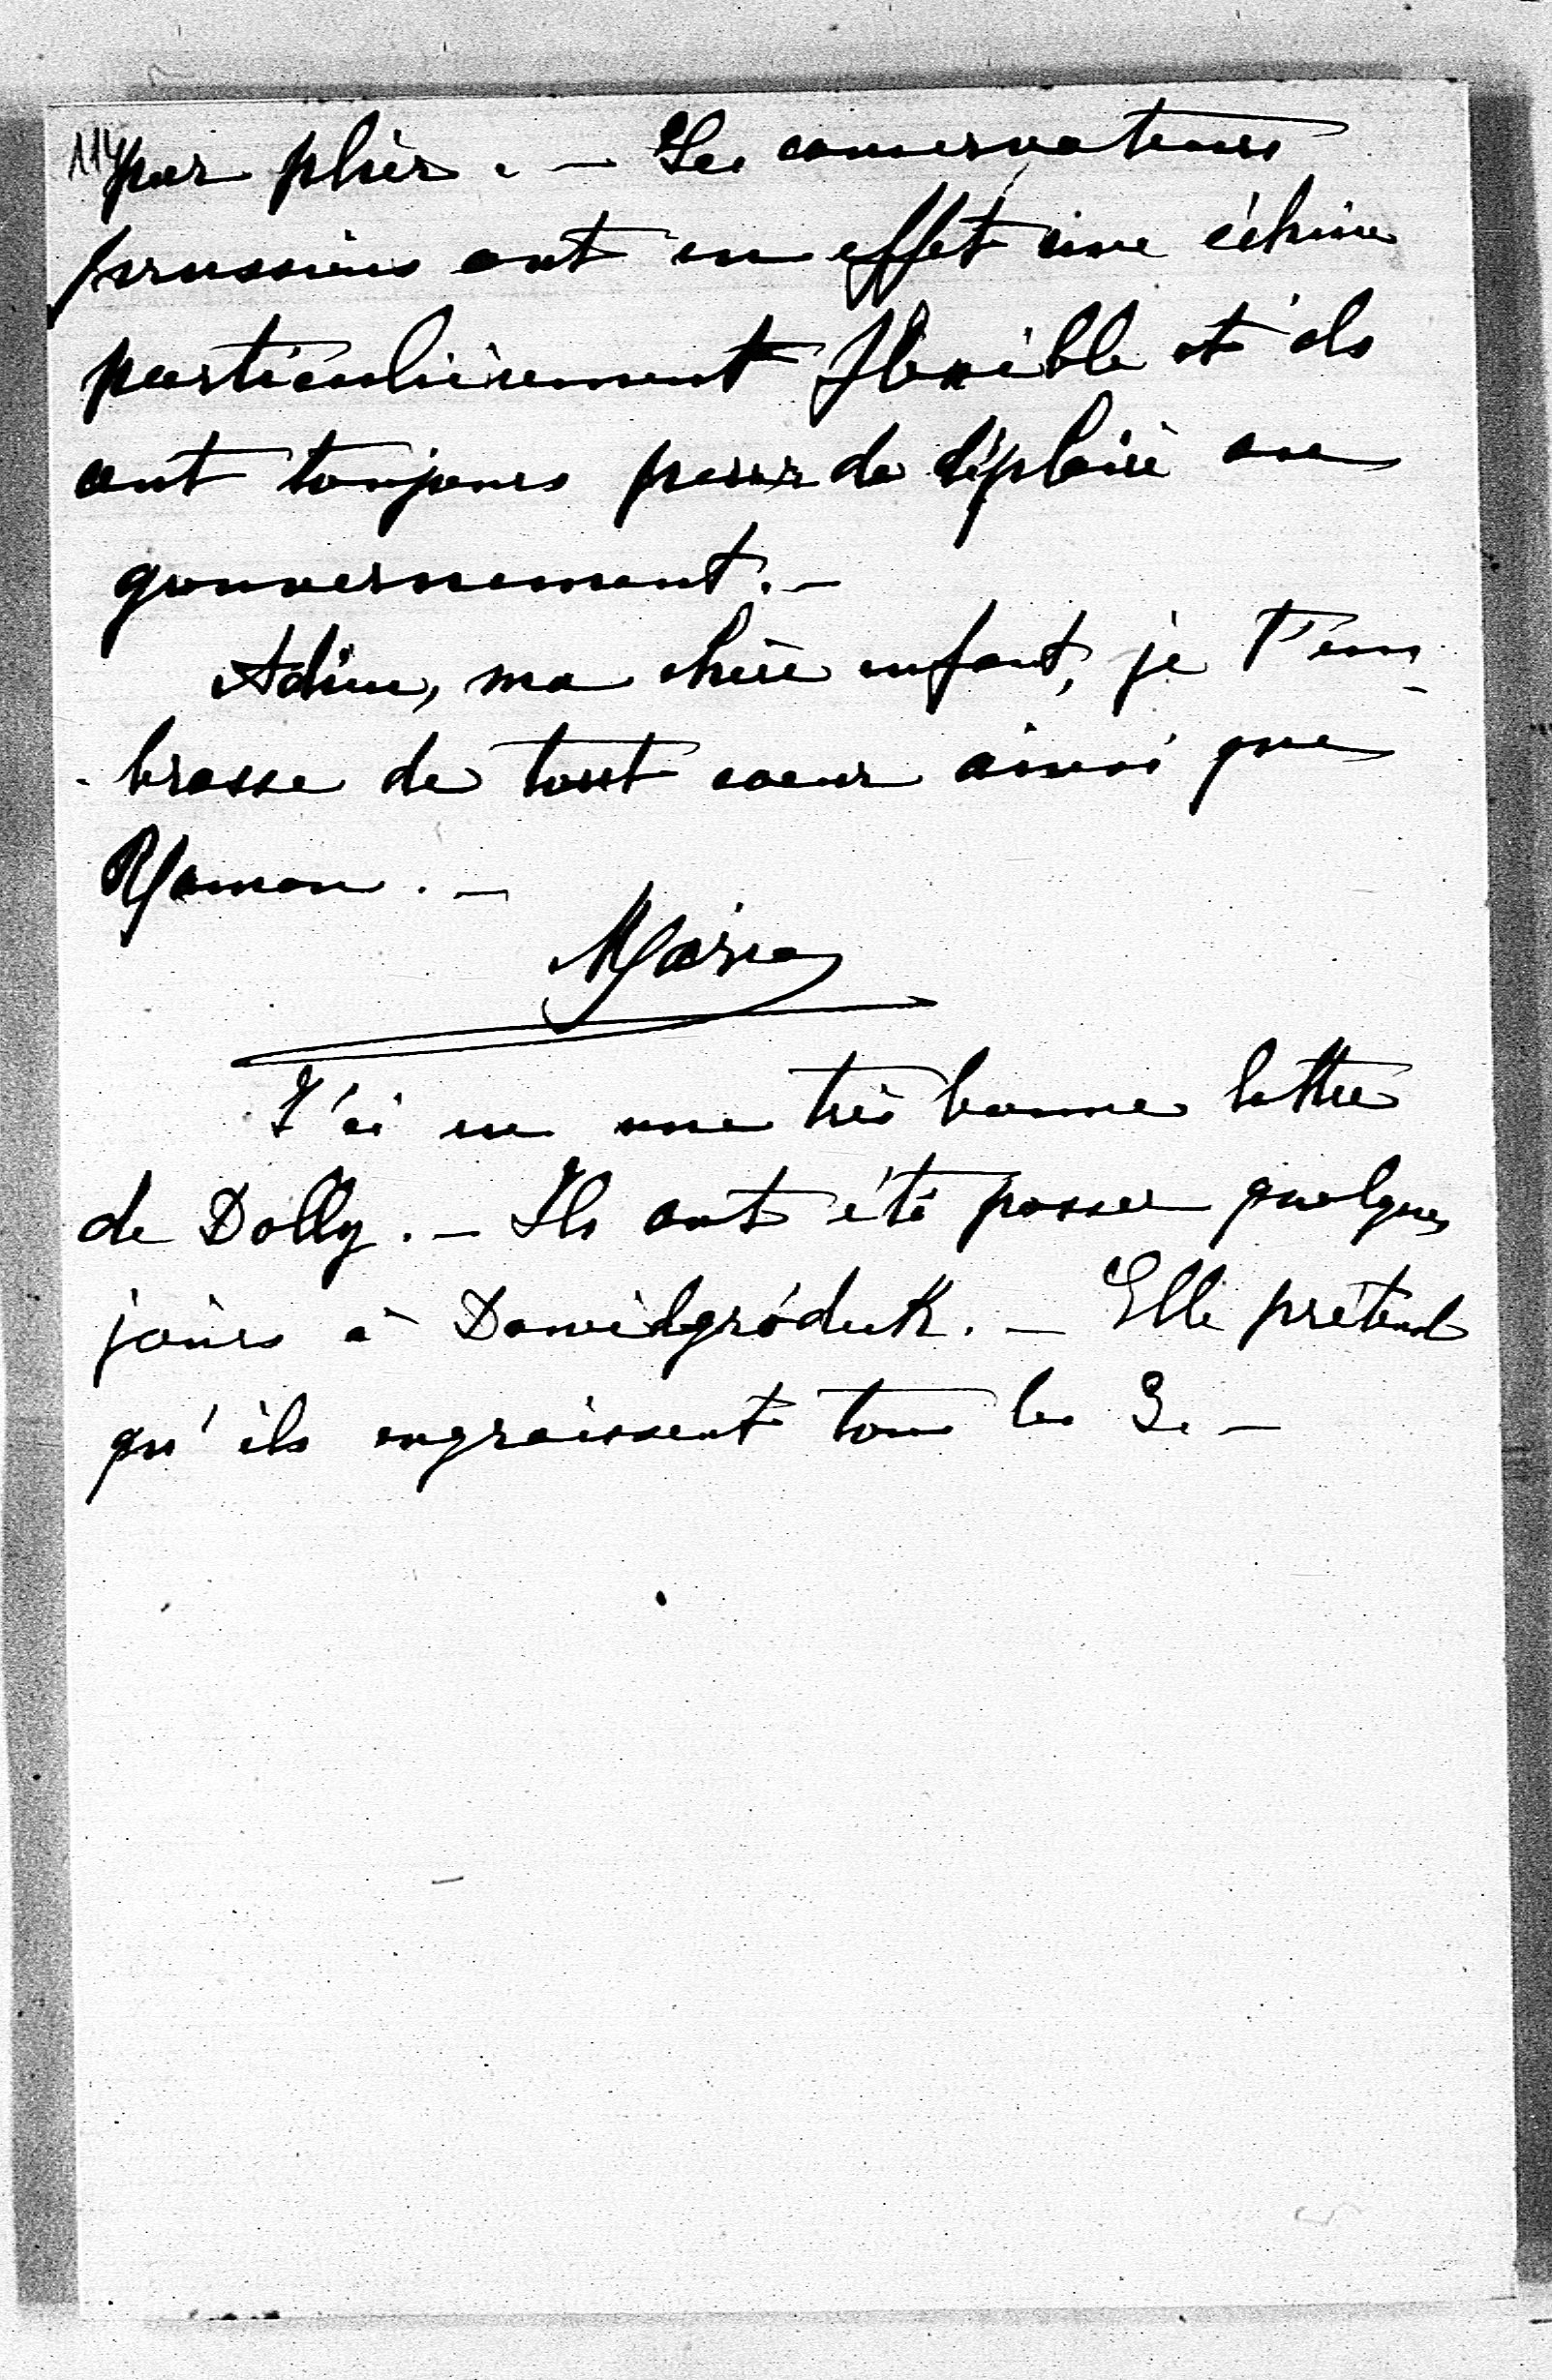 114
par plier. — Les conservateurs
prussiens ont en effet une échine
particulièrement flexible et ils
ont toujours peur de déplaire au
gouvernement. —
Adieu, ma chère enfant, je t'em-
-brasse de tout coeur ainsi que
Maman. —
Marie
J'ai eu une très bonne lettre
de Dolly. — Ils ont été passer quelques
jours à Dawidgródek. — Elle prétend
qu'ils engraissent tous les 3. —